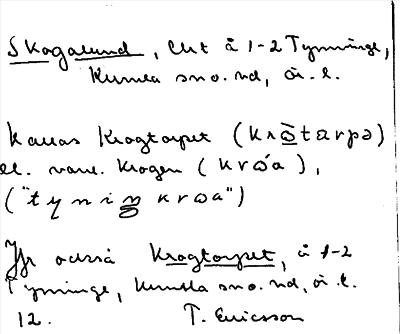 Skogalund, lht å 1-2 Tynninge,
Kumla sn o. hd, ör. l.
kallas Krogtorpet (krɷ̀tarpə)
el. vanl. Krogen (krɷ́a),
("tyniŋ krɷa")
Jfr också Krogtorpet, å 1-2
Tynninge, Kumla sn o. hd, ör. l.
12. T. Ericsson